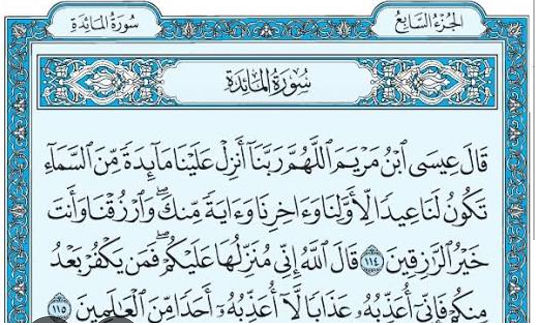 الجُزْءُ السَّابِعُ
سُورَةُ المَائِدَةِ
سُورَةُ المَائِدَةِ
قَالَ عِيسَى ٱبْنُ مَرْيَمَ ٱللَّهُمَّ رَبَّنَآ أَنزِلْ عَلَيْنَا مَآئِدَةً مِّنَ ٱلسَّمَآءِ
تَكُونُ لَنَا عِيدًا لِّأَوَّلِنَا وَءَاخِرِنَا وَءَايَةً مِّنكَۖ وَٱرْزُقْنَا وَأَنتَ
خَيْرُ ٱلرَّٰزِقِينَ ١١٤ قَالَ ٱللَّهُ إِنِّى مُنَزِّلُهَا عَلَيْكُمْۖ فَمَن يَكْفُرْ بَعْدُ
مِنكُمْ فَإِنِّىٓ أُعَذِّبُهُۥ عَذَابًا لَّآ أُعَذِّبُهُۥٓ أَحَدًا مِّنَ ٱلْعَٰلَمِينَ ١١٥